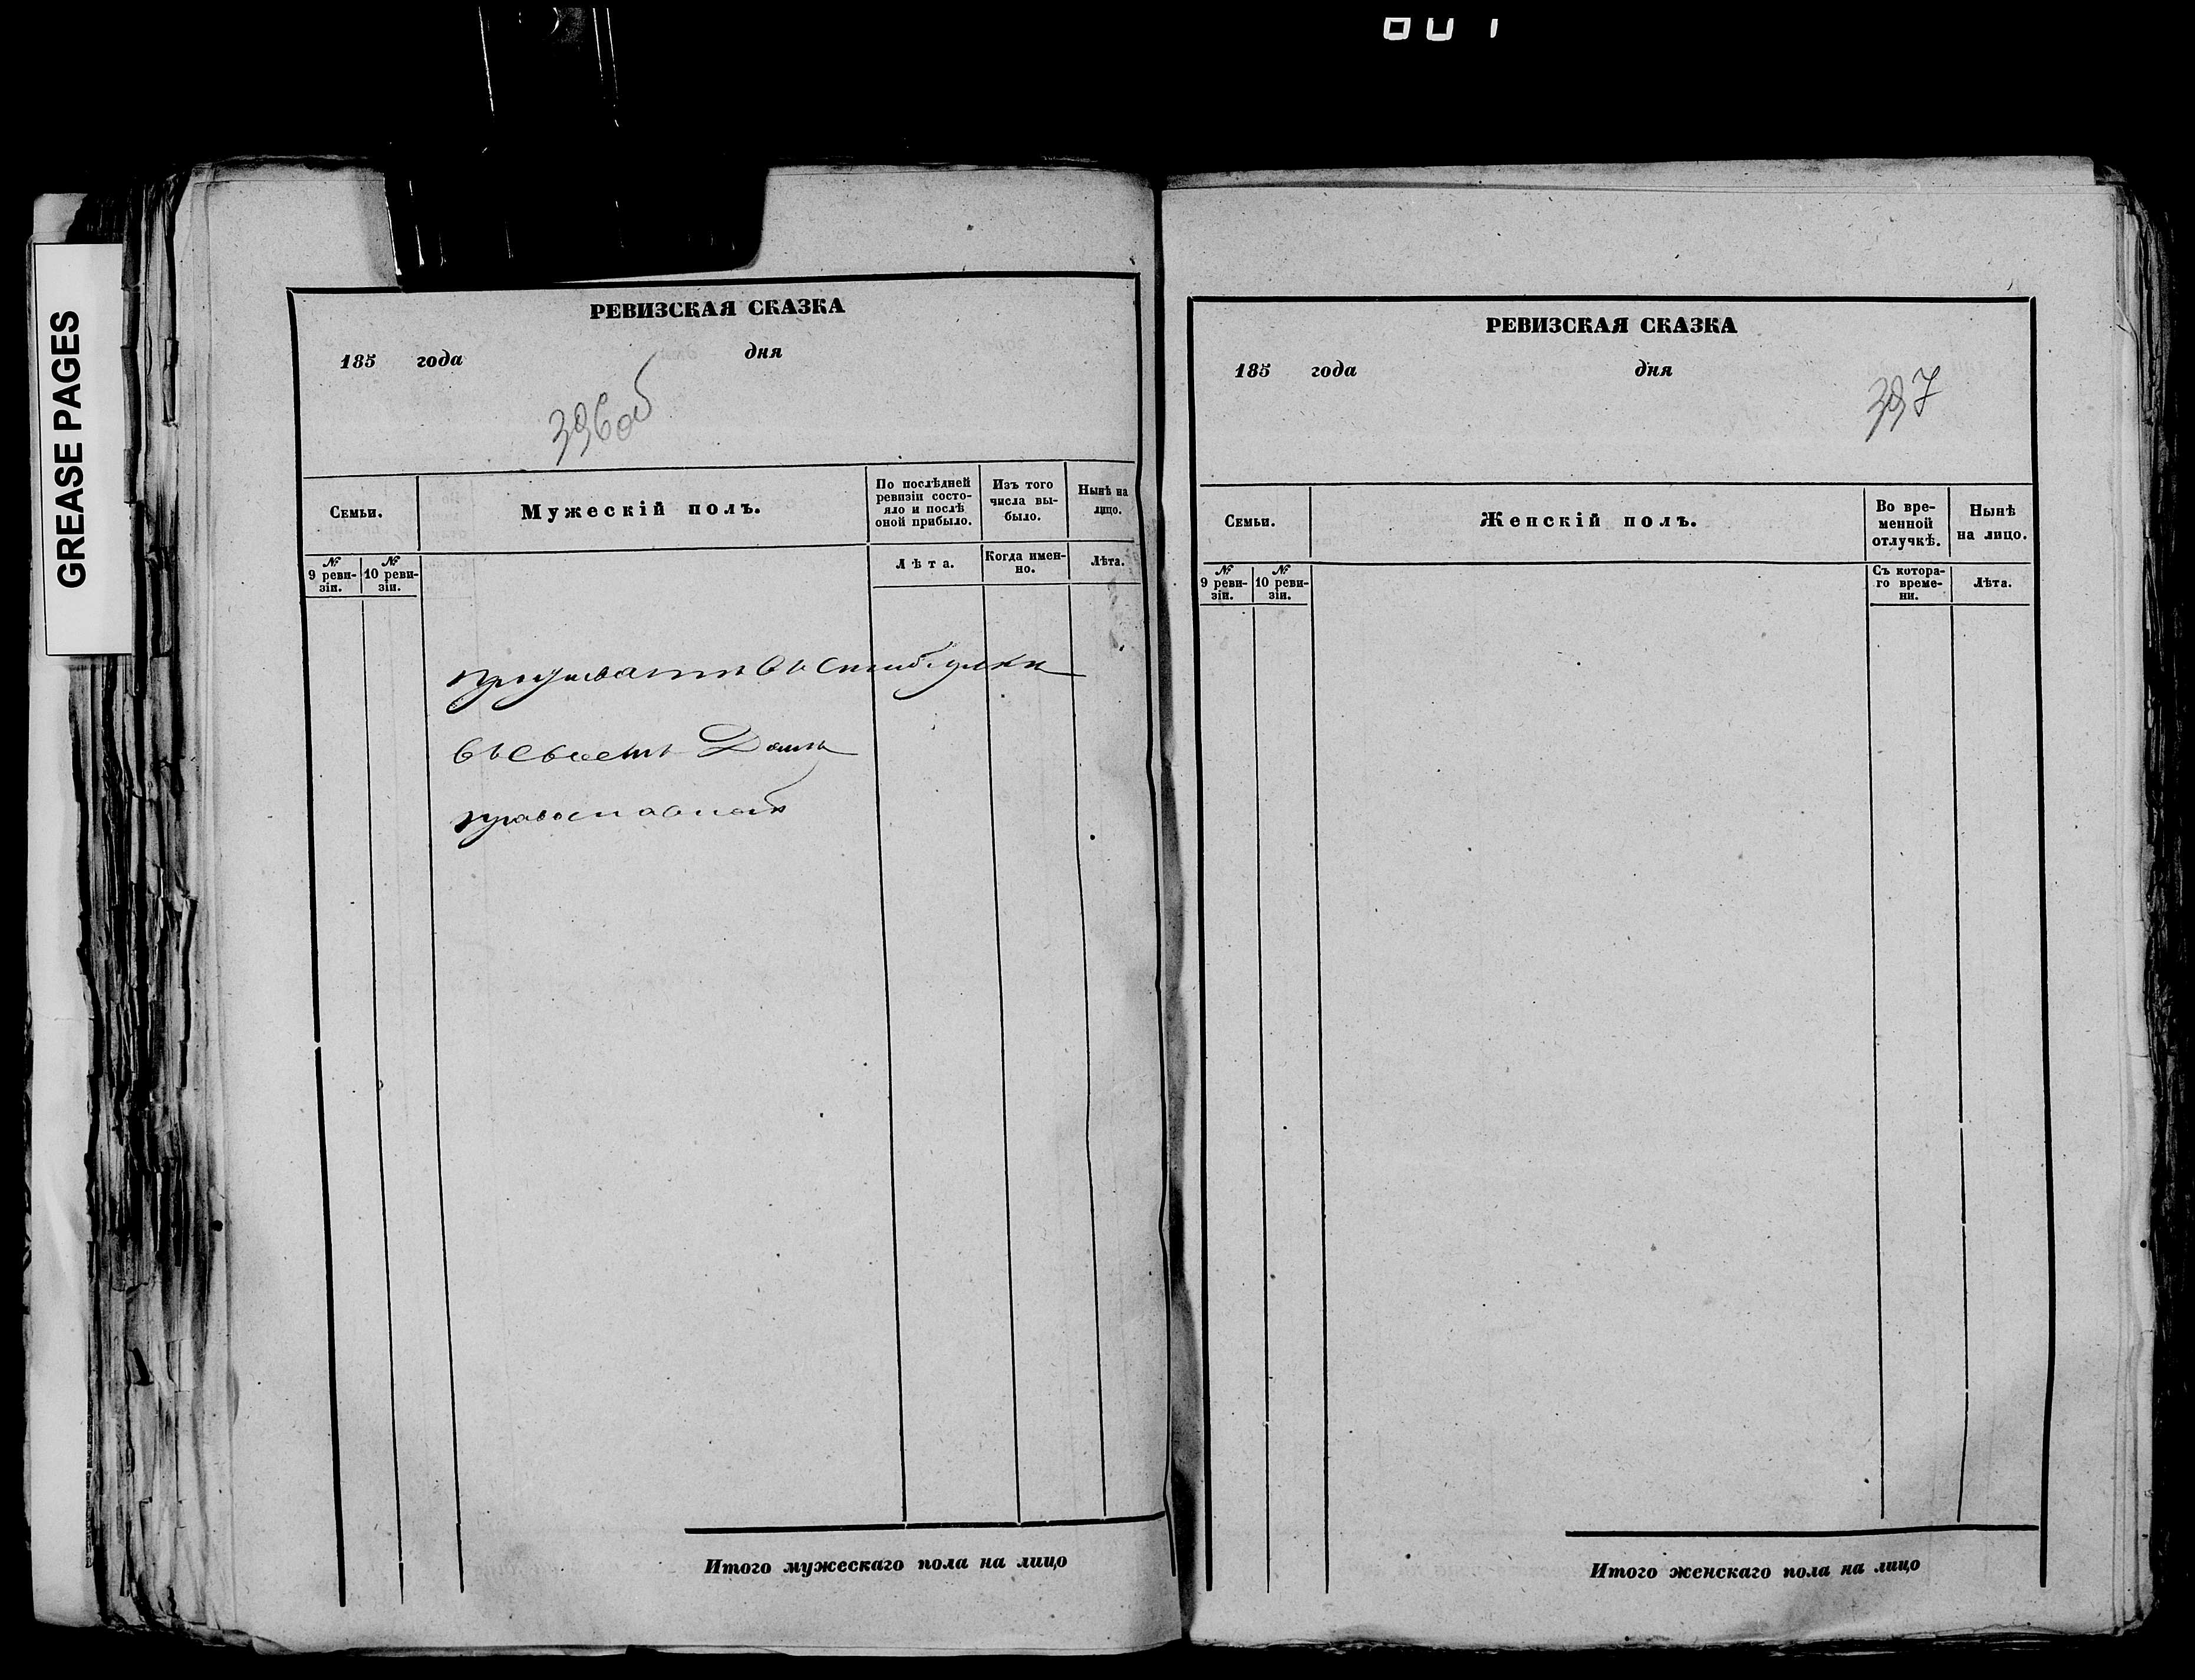 GREASE PAGES
РЕВИЗСКАЯ СКАЗКА
185 года дня
396об
Семьи.
Мужескій полъ.
По послѣдней ревизіи состояло и послѣ оной прибыло.
Изъ того числа выбыло.
Нынѣ на лицо.
№ 9 ревизіи.
№ 10 ревизіи.
Лѣта.
Когда именно.
Лѣта.
проживаютъ въ
въ своемъ Домѣ
православной
Итого мужескаго пола на лицо
РЕВИЗСКАЯ СКАЗКА
185 года дня
397
Семьи.
Женскій полъ.
Во временной отлучкѣ.
Нынѣ на лицо.
№ 9 ревизіи.
№ 10 ревизіи.
Съ котораго времени.
Лѣта.
Итого женскаго пола на лицо